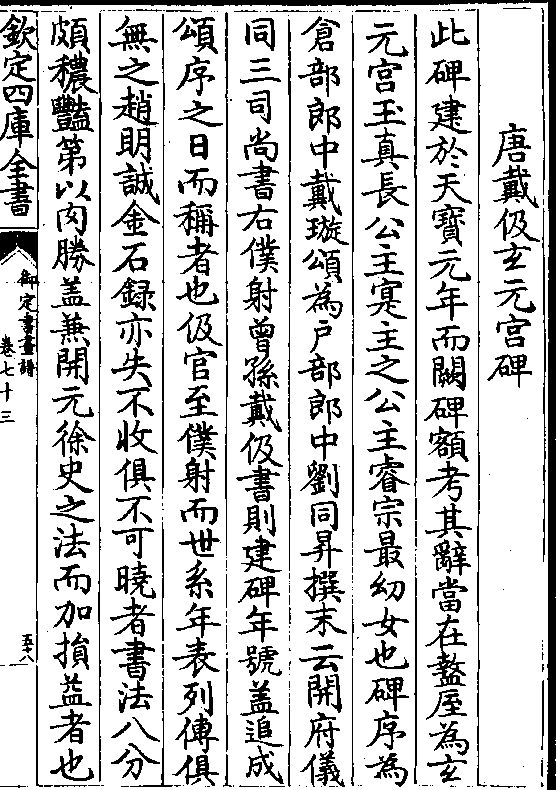 唐戴伋玄元宫碑
此碑建於天寶元年而闕碑額考其辭當在盩厔為玄
元宫玉真長公主寔主之公主睿宗最幼女也碑序為
倉部郎中戴璇頌為戸部郎中劉同昇撰末云開府儀
同三司尚書右僕射曾孫戴伋書則建碑年號盖追成
頌序之日而稱者也伋官至僕射而世系年表列傳俱
無之趙明誠金石録亦失不收俱不可曉者書法八分
頗穠豔第以肉勝盖兼開元徐史之法而加損益者也
欽定四庫全書
御定書畫譜
卷七十三
五十八